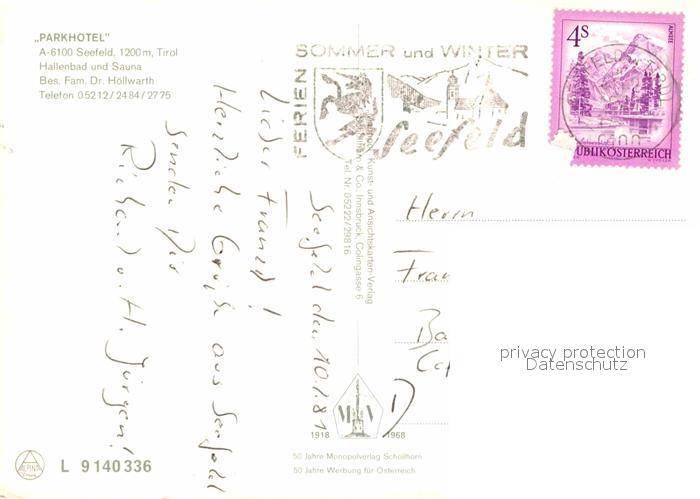 „PARKHOTEL"
A-6100 Seefeld, 1200 m, Tirol
Hallenbad und Sauna
Bes. Fam. Dr. Höllwarth
Telefon 05212/2484/2775
FERIEN
SOMMER und WINTER
Seefeld
4S
ALMSEE
REPUBLIK ÖSTERREICH
Seefeld den 10.1.81
Lieber Franz!
Herzliche Grüße aus Seefeld
senden Dir
Richard u. H. Jürgen!
Kunst- und Ansichtskarten-Verlag
& Co. Innsbruck, Colingasse 6
Tel. Nr. 05222/29816
Herrn
Fran
Ba
D
privacy protection
Datenschutz
1918 1968
50 Jahre Monopolverlag Schöllhorn
50 Jahre Werbung für Österreich
ALPINA
L 9140336